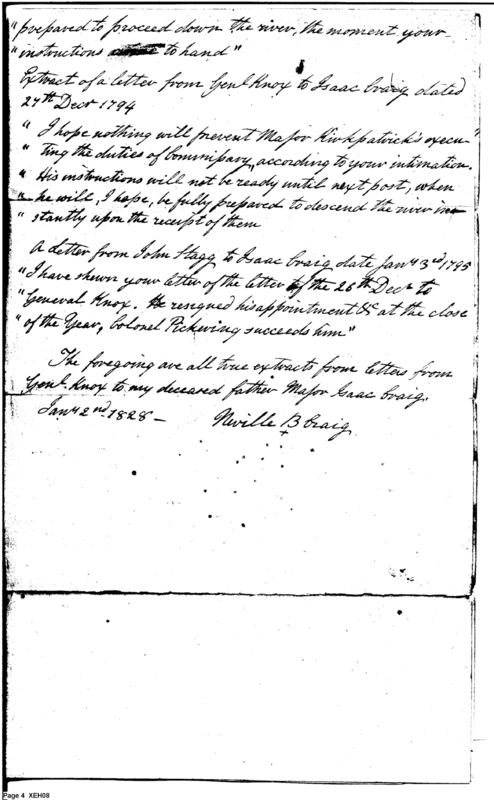 " prepared to proceed down the river, the moment your
" instructions to hand"
Extract of a letter from Genl Knox to Isaac Craig dated
27th Decr 1794
" I hope nothing will prevent Major Kirkpatrick's execu-
" ting the duties of Commissary, according to your intimation.
" His instructions will not be ready until next post, when
" he will, I hope, be fully prepared to descend the river in-
" stantly upon the receipt of them
A Letter from John Stagg to Isaac Craig date Jany 3rd 1795
" I have shewn your letter of the letter of the 26th Decr to
" General Knox. He resigned his appointment &c at the close
" of the Year, Colonel Pickering succeeds him"
The foregoing are all true extracts from letters from
Genl. Knox to my deceased father Major Isaac Craig.
Jany 2nd 1828 - Neville B Craig
Page 4 XEH08